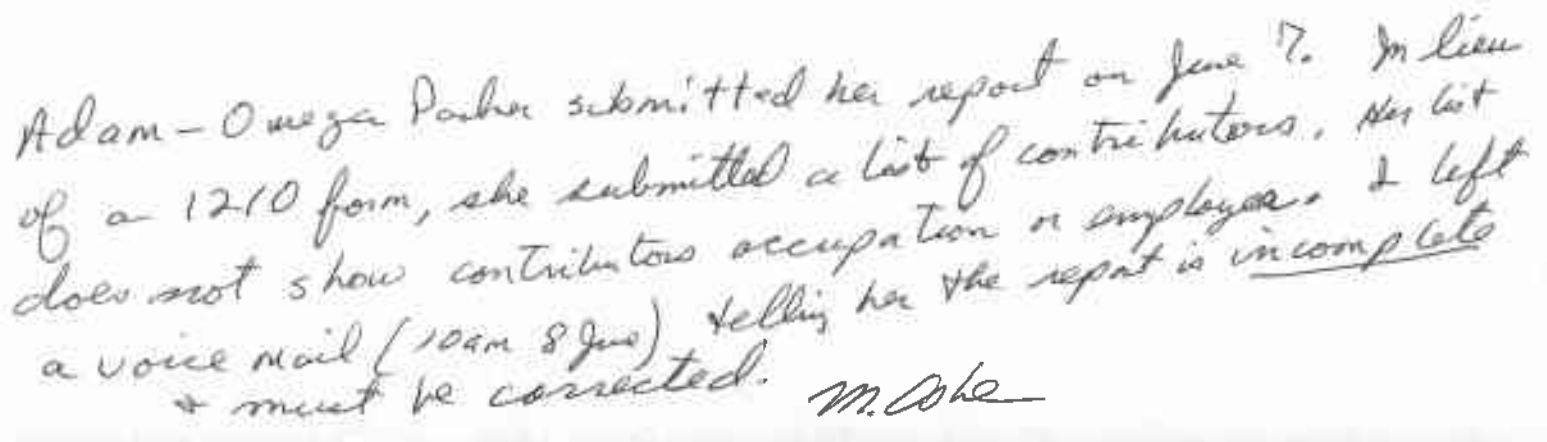 Adam - Omega Parker submitted her report on June 7. In lieu
of a 1210 form, she submitted a list of contributors. Her list
does not show contributors occupation or employer. I left
a voice mail (10am 8 June) telling her the report is incomplete
+ must be corrected. M.